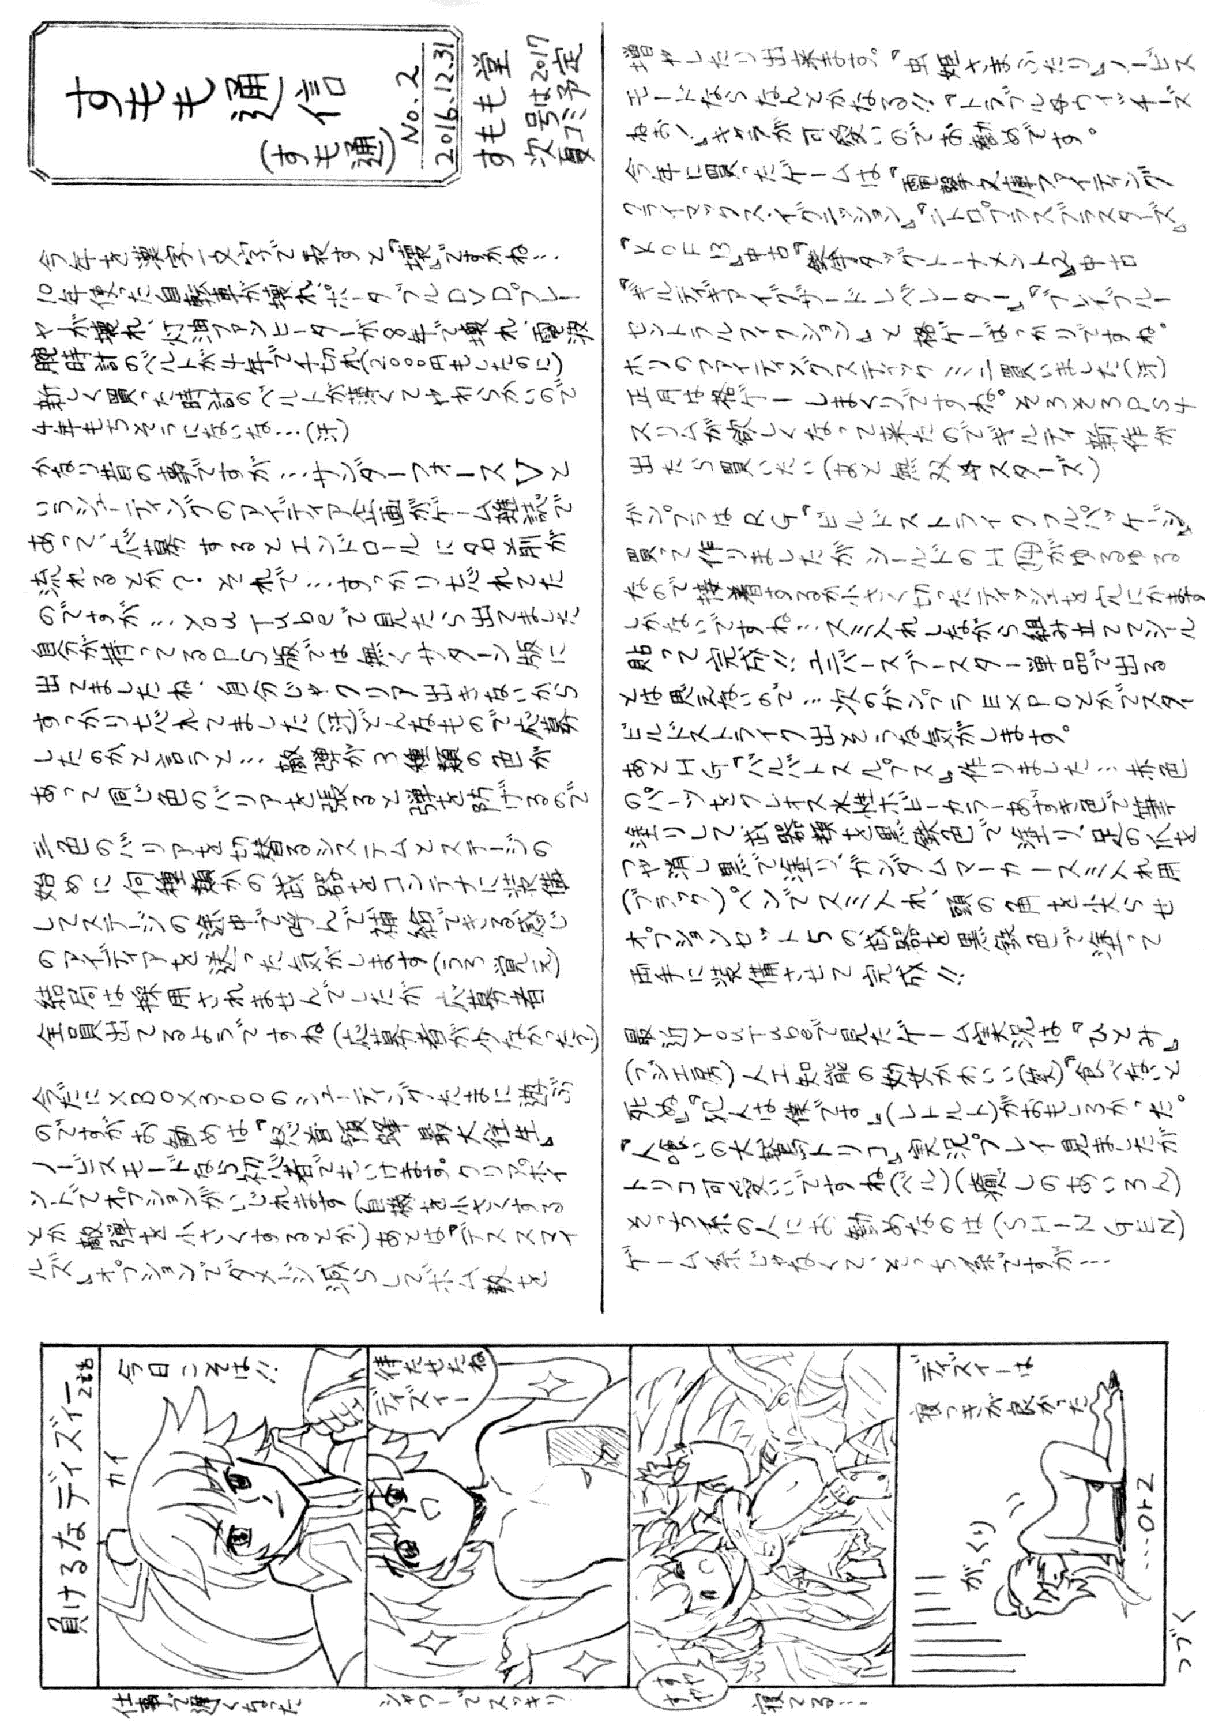 すもも通信
(すも通)
No.2
2016.12.31
すもも堂
次号は2017
夏コミ予定
今年を漢字一文字で表すと『壊』ですかね…
10年使った自転車が壊れ、ポータブルDVDプレー
ヤーが壊れ、灯油ファンヒーターが8年で壊れ、電波
腕時計のベルトが4年で千切れ(2000円もしたのに)
新しく買った時計のベルトが薄くてやわらかいので
4年もちそうにないな…(汗)
かなり昔の事ですが…サンダーフォースVと
いうシューティングのアイディア企画がゲーム雑誌で
あって、応募するとエンドロールに名前が
流れるとか?それで…すっかり忘れてた
のですが…YouTubeで見たら出てました
自分が持ってるPS版では無くサターン版に
出てましたね、自分じゃクリア出きないから
すっかり忘れてました(汗)どんなもので応募
したのかと言うと…敵弾が3種類の色が
あって同じ色のバリアを張ると弾を防げるので
三色のバリアを切替るシステムとステージの
始めに何種類かの武器をコンテナに装備
してステージの途中で呼んで補給できる感じ
のアイディアを送った気がします(うろ覚え)
結局は採用されませんでしたが応募者
全員出てるようですね(応募者が少なかった?)
今だにXBOX360のシューティングたまに遊ぶ
のですがお勧めは『怒首領蜂最大往生』
ノービスモードなら初心者でもいけます。クリアポイ
ントでオプションがいじれます(自機を小さくする
とか敵弾を小さくするとか)あとは『デススマイ
ルズ』オプションでダメージ減らしてボム数を
増やしたり出来ます。『虫姫さまふたり』ノービス
モードならなんとかなる!!『トラブル☆ウィッチーズ
ねお!』キャラが可愛いのでお勧めです。
今年に買ったゲームは『電撃文庫ファイティング
クライマックスイグニッション』『ニトロプラスブラスターズ』
『KOF13』中古『鉄拳タッグトーナメント2』中古
『ギルティギアイグザードレベレーター』『ブレイブルー
セントラルフィクション』と格ゲーばっかりですね。
ホリのファイティングスティックミニ買いました(汗)
正月は格ゲーしまくりですね。そろそろPS4
スリムが欲しくなって来たのでギルティ新作が
出たら買いたい(あと無双☆スターズ)
ガンプラはRG『ビルドストライクフルパッケージ』
買って作りましたがシールドのH⑭がゆるゆる
なので接着するか小さく切ったティッシュを穴にかます
しかないですね…スミ入れしながら組み立ててシール
貼って完成!!ユニバースブースター単品で出る
とは思えないので…次のガンプラEXPOとかでスター
ビルドストライク出そうな気がします。
あとHG『バルバトスルプス』作りました…赤色
のパーツをクレオス水性ホビーカラーあずき色で筆
塗りして武器類を黒鉄色で塗り、足の爪を
つや消し黒で塗り、ガンダムマーカースミ入れ用
(ブラック)ペンでスミ入れ、頭の角を尖らせ
オプションセット5の武器を黒鉄色で塗って
両手に装備させて完成!!
最近YouTubeで見たゲーム実況は『ひとみ』
(フジ工房)人工知能の幼女かわいい(笑)『食べないと
死ぬ』『犯人は僕です』(レトルト)がおもしろかった。
『人喰いの大鷲トリコ』実況プレイ見ましたが
トリコ可愛いですね(ベル)(癒しのあいろん)
そっち系の人にお勧めなのは(SHIN GEN)
ゲーム系じゃなくて、そっち系ですが…
負けるなディズィー
2話目
カイ
今日こそは!!
仕事で遅くなった
待たせたね
ディズィー
シャワーでスッキリ
すやすや
寝てる…
ディズィーは
寝つきが良かった
がっくり
…OTZ
つづく